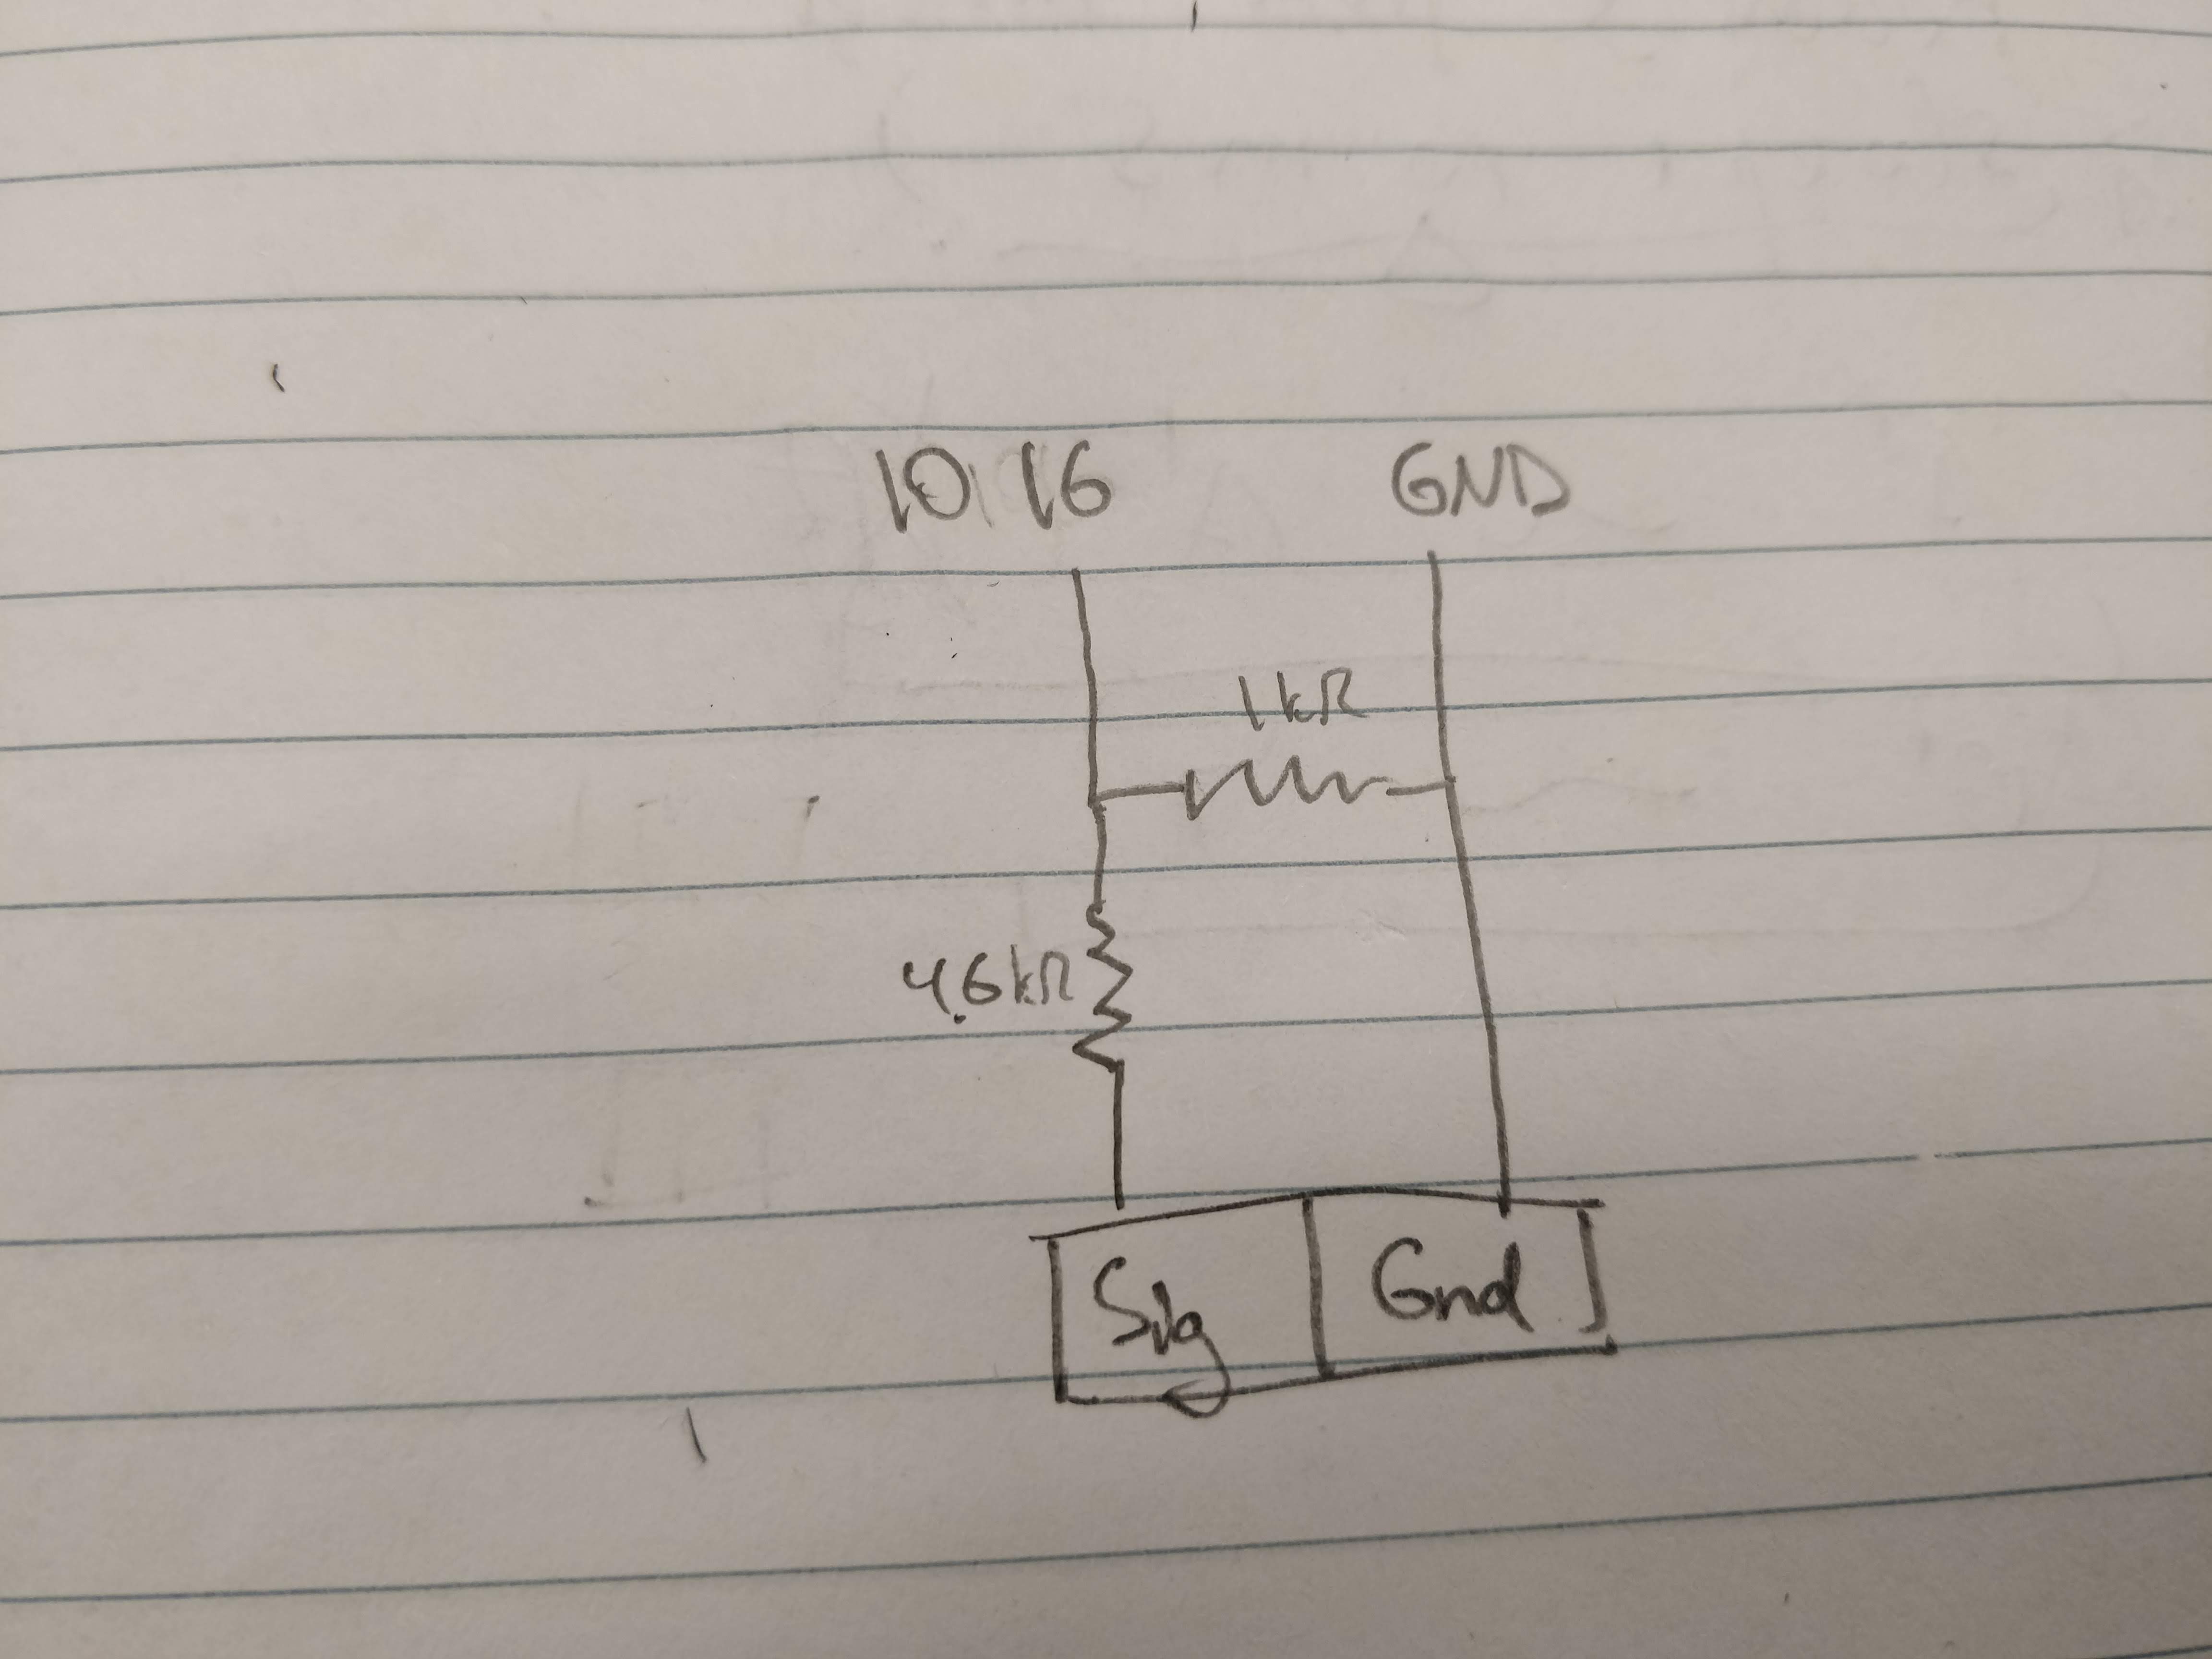 IO 16 GND
1kΩ
4.6kΩ
Sig Gnd